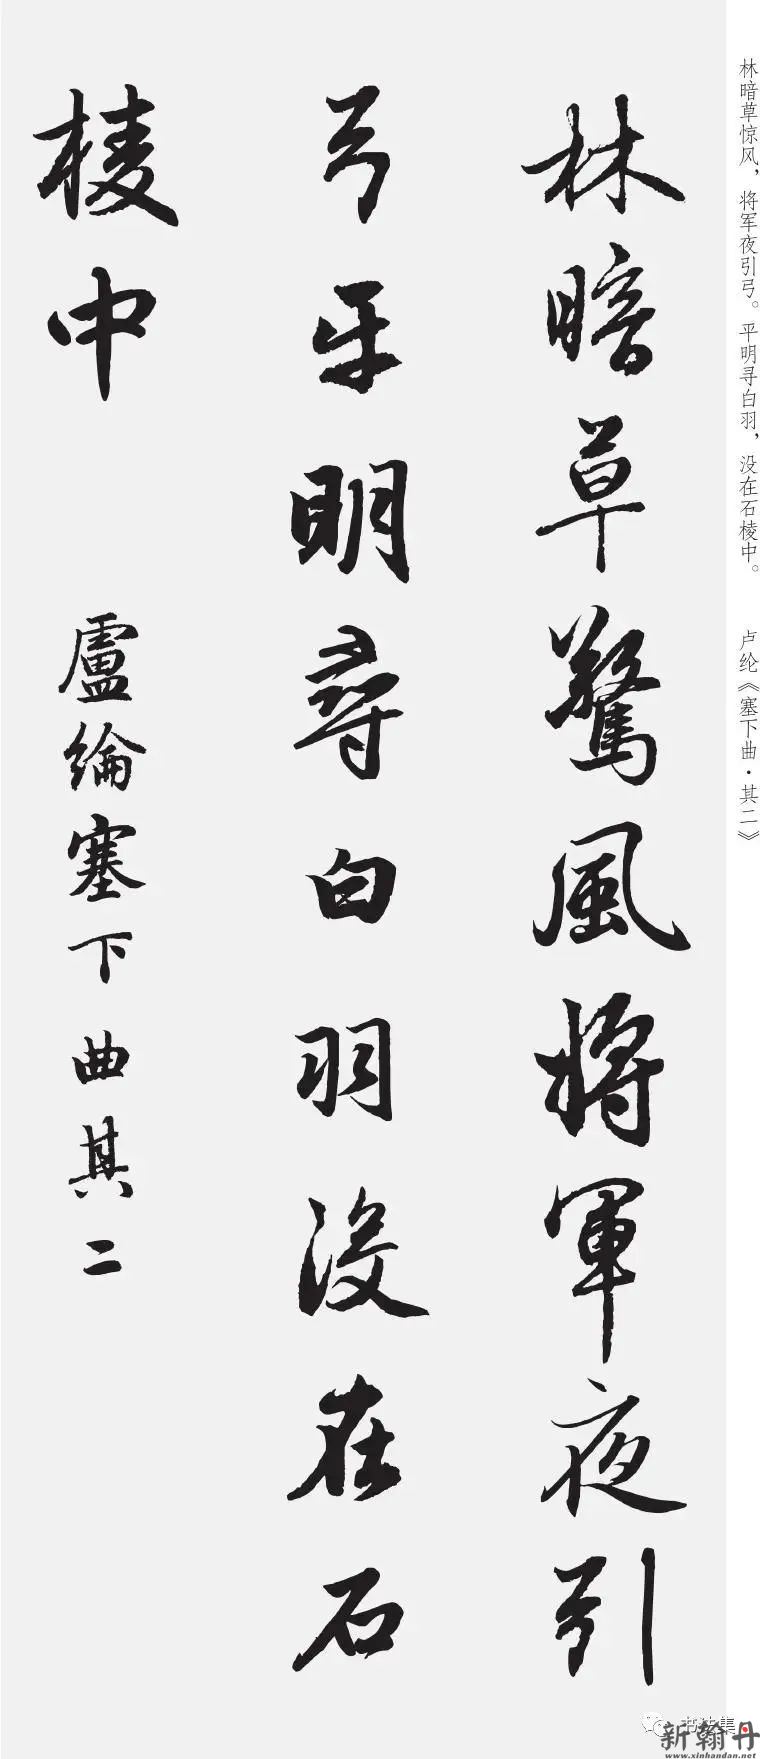 林暗草惊风，将军夜引弓。平明寻白羽，没在石棱中。　卢纶《塞下曲·其二》
林暗草驚風將軍夜引
弓平明尋白羽没在石
棱中
盧綸塞下曲其二
书法集
新翰丹
www.xinhandan.net